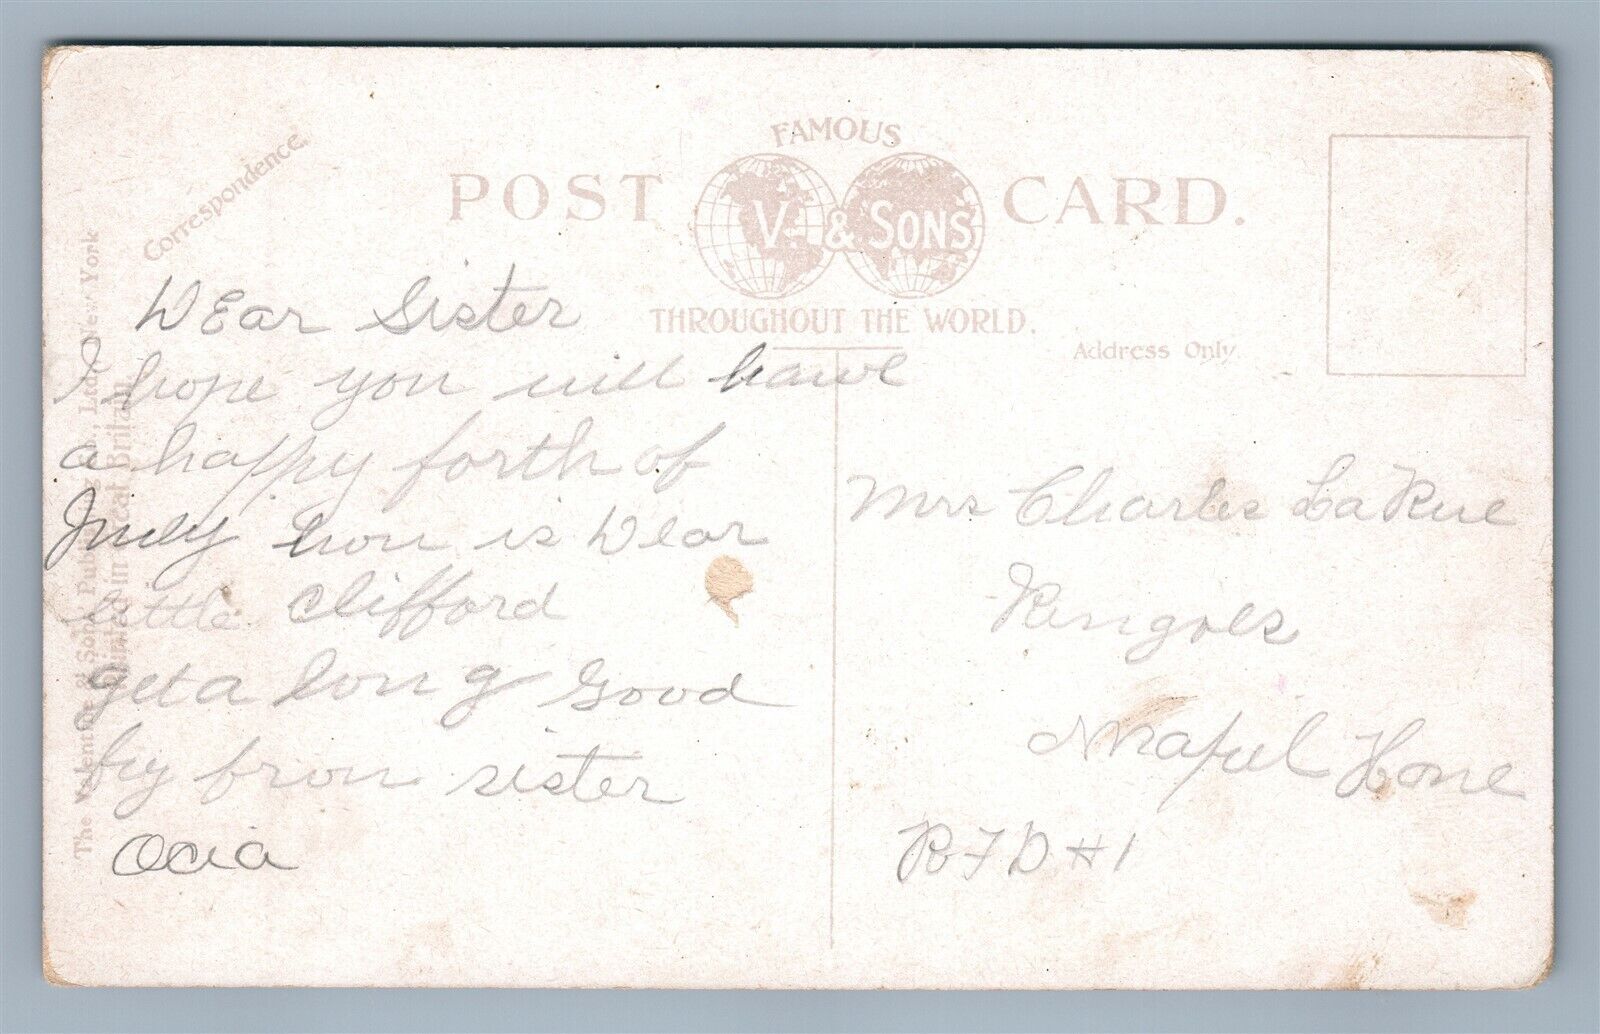 FAMOUS
POST CARD.
V. & SONS
THROUGHOUT THE WORLD.
Correspondence.
Address Only.
The Valentine & Sons' Publishing Co., Ltd. New York
Printed in Great Britain.
Dear Sister
I hope you will have
a happy forth of
July how is Dear
little Clifford
geta long Good
by from sister
Ocia
Mrs Charles LaRue
Ringoes
Mapel Hone
RFD #1